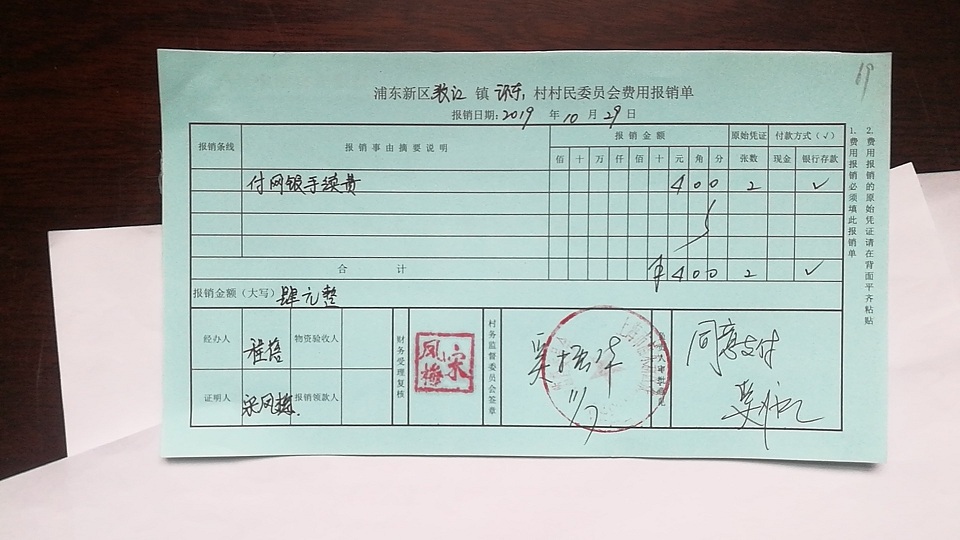 19
浦东新区张江镇环东村村民委员会费用报销单
报销日期:2019年10月29日
报销条线 报销事由摘要说明 报销金额 原始凭证 付款方式(√)
佰 十 万 仟 佰 十 元 角 分 张数 现金 银行存款
付网银手续费 4 0 0 2 √
合计 ¥ 4 0 0 2 √
报销金额(大写) 肆元整
经办人 物资验收人
证明人 宋凤梅 报销领款人
财务受理复核
宋凤梅
村务监督委员会签章
11/7
同意支付
1.费用报销必须填此报销单
2.费用报销的原始凭证请在背面平齐粘贴